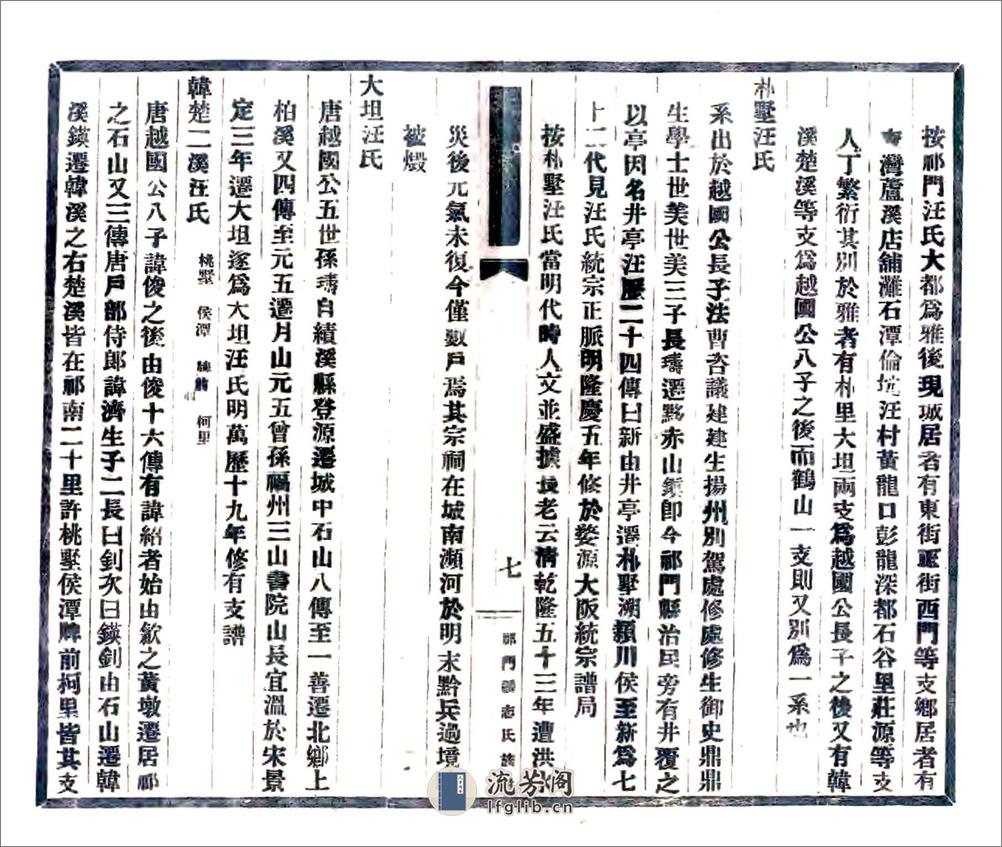 按祁門汪氏大都爲雅後現城居者有東街正街西門等支鄉居者有
灣蘆溪店舖灘石潭倫坑汪村黃龍口彭龍深都石谷里莊源等支
人丁繁衍其別於雅者有朴里大坦兩支爲越國公長子之後又有韓
溪楚溪等支爲越國公八子之後而鶴山一支則又別爲一系也
朴墅汪氏
系出於越國公長子法曹咨議建建生揚州別駕處修處修生御史鼎鼎
生學士世美世美三子長璹遷黟赤山鎭卽今祁門縣治民旁有井覆之
以亭因名井亭汪歷二十四傳曰新由井亭遷朴墅溯潁川侯至新爲七
十二代見汪氏統宗正脈明隆慶五年修於婺源大阪統宗譜局
按朴墅汪氏當明代時人文並盛據長老云清乾隆五十三年遭洪水
災後元氣未復今僅數戶焉其宗祠在城南瀕河於明末黔兵過境
被燬
大坦汪氏
唐越國公五世孫璹自績溪縣登源遷城中石山八傳至一善遷北鄉上
柏溪又四傳至元五遷月山元五曾孫福州三山書院山長宜溫於宋景
定三年遷大坦遂爲大坦汪氏明萬歷十九年修有支譜
韓楚二溪汪氏 桃墅 侯潭 柯里
唐越國公八子諱俊之後由俊十六傳有諱紹者始由歙之黃墩遷居祁
之石山又三傳唐戶部侍郎諱濟生子二長曰釗次曰鍈釗由石山遷韓
溪鍈遷韓溪之右楚溪皆在祁南二十里許桃墅侯潭牌前柯里皆其支
七
祁門縣志氏族
流芳阁
lfglib.cn